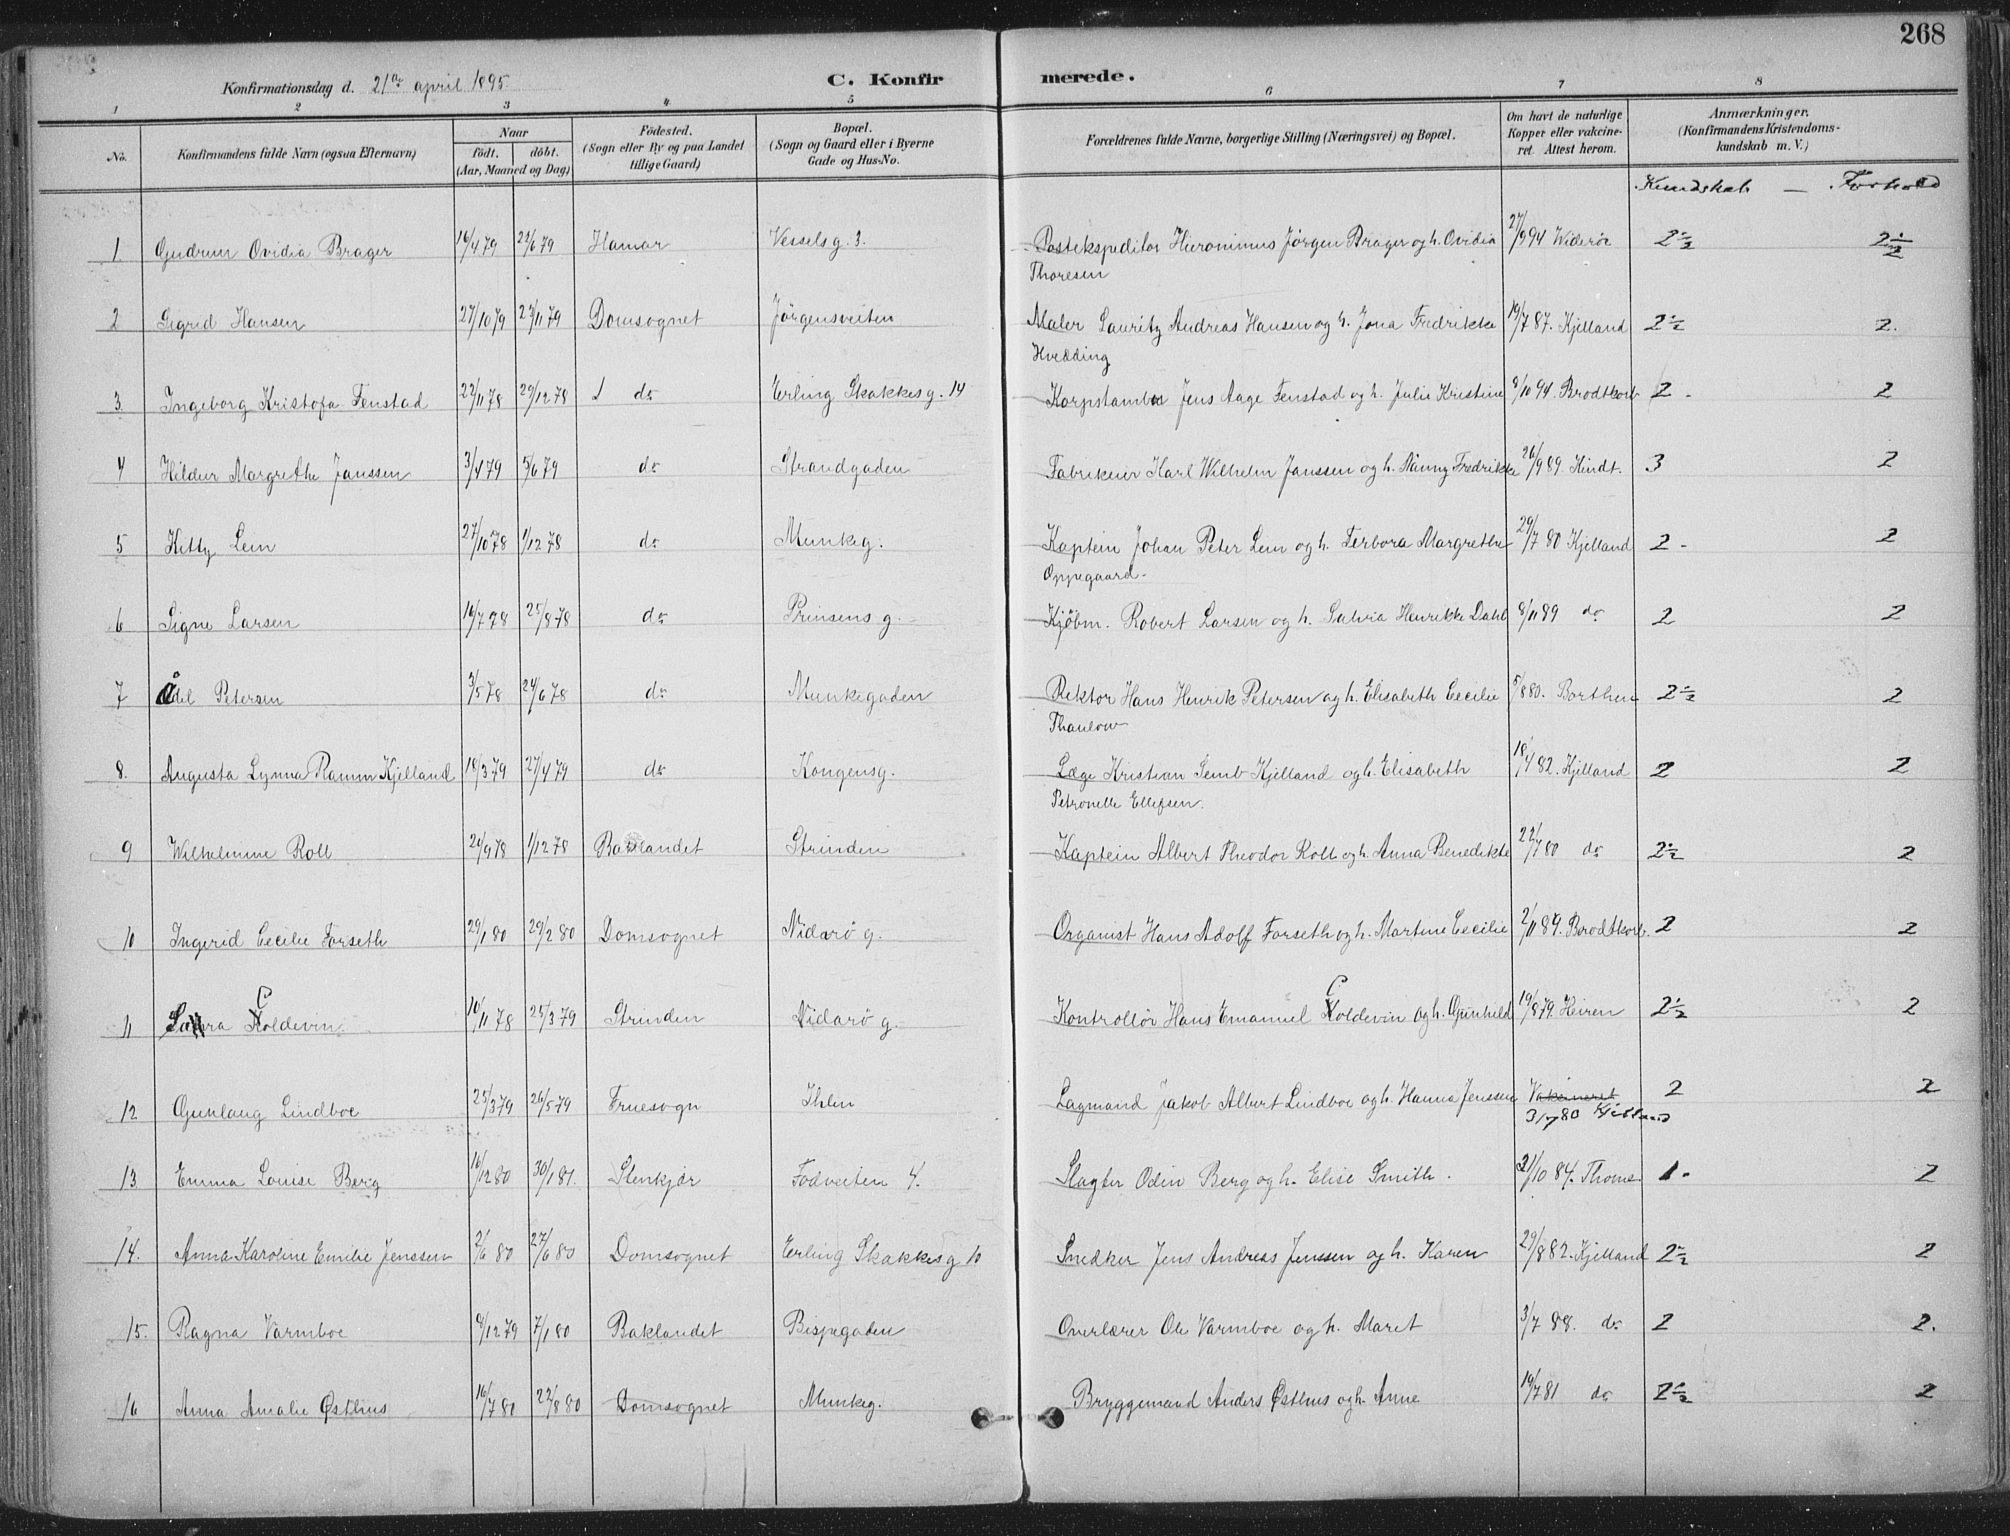 268
Konfirmationsdag d. 21de april 1895.
C. Konfirmerede.
1 2 3 4 5 6 7 8
No.
Konfirmandens fulde Navn (ogsaa Efternavn)
Naar
födt. döbt.
(Aar, Maaned og Dag)
Födested.
(Sogn eller By og paa Landet
tillige Gaard)
Bopæl.
(Sogn og Gaard eller i Byerne
Gade og Hus-No.
Forældrenes fulde Navne, borgerlige Stilling (Næringsvei) og Bopæl.
Om havt de naturlige
Kopper eller vakcine-
ret. Attest herom.
Anmærkninger.
(Konfirmandens Kristendoms-
kundskab m. V.)
Kundskab — Forhold
1 Gudrun Ovidia Brager 16/4 79 22/6 79 Hamar Vesselsg. 3. Postekspeditør Hieronimus Jørgen Brager og h. Ovidia 27/9 94 Widerøe 2 1/2 2 1/2
Thoresen
2 Sigrid Hansen 27/10 79 23/11 79 Domsognet Jørgensveiten Maler Lauritz Andreas Hansen og h. Jona Fredrikke 19/7 87. Kjelland 2 1/2 2.
Hvedding
3. Ingeborg Kristofa Fenstad 22/11 78 29/12 78 do Erling Skakkes g. 14 Korpstambur Jens Aage Fenstad og h. Julie Kristine 8/10 94. Brodtkorb 2 - 2
4 Hildur Margrethe Janssen 3/4 79 5/6 79 do Strandgaden Fabrikeier Karl Wilhelm Janssen og h. Nanny Fredrikke 26/9 89 Hindt. 3 2
5 Kitty Lein 27/10 78 1/12 78 do Munkeg. Kaptein Johan Peter Lein og h. Ferbora Margrethe 29/7 80 Kjelland 2 - 2
Oppegaard -
6 Signe Larsen 16/7 78 25/8 78 do Prinsens g. Kjöbm. Robert Larsen og h. Salvia Henrikke Dahl 8/11 89 do 2 2
7 Ådel Petersen 3/5 78 24/6 78 do Munkegaden Rektor Hans Henrik Petersen og h. Elisabeth Cecilie 5/8 80. Borthen 2 1/2 2
Thaulow
8. Augusta Lynna Ramm Kjelland 18/3 79 27/4 79 do Kongensg. Læge Kristian Semb Kjelland og h. Elisabeth 18/4 82. Kjelland 2 2
Petronelle Ellefsen.
9 Wilhelmine Roll 20/9 78 1/12 78 Baklandet Strinden Kaptein Albert Theodor Roll og h. Anna Benedikte 22/4 80 do 2 1/2 2
10 Ingerid Cecilie Forseth 29/1 80 29/2 80 Domsognet Nidarö g. Organist Hans Adolf Forseth og h. Martine Cecilie 2/11 89. Brodtkorb. 2 2
11 Coldevin. 10/11 78 25/3 79 Strinden Nidarö g. Kontrollör Hans Emanuel Coldevin og h. Gunhild 19/8 79. Heiren 2 1/2 2
12 Gunlaug Lindboe 25/3 79 26/5 79 Fruesogn Ihlen Lagmand Jakob Albert Lindboe og h. Hanna Jenssen Vakcineret 2 2
3/7 80 Kjelland
13. Emma Louise Berg 16/12 80 30/1 81. Stenkjær Fodveiten 4. Slagter Odin Berg og h. Elise Smith. 21/10 84. Thome 1 - 2
14. Anna Karoline Emilie Jenssen 2/6 80 27/6 80 Domsognet Erling Skakkes g 10 Snedker Jens Andreas Jenssen og h. Karen 29/8 82. Kjelland 2 1/2 2
15. Ragna Varmboe 8/12 79 7/1 80 Baklandet Bispegaden Overlærer Ole Varmboe og h. Maret 3/7 88. do 2 2.
16 Anna Amalie Østhus 16/7 80 22/8 80 Domsognet Munkeg. Bryggemand Anders Østhus og h. Anne 19/7 81 do 2 1/2 2